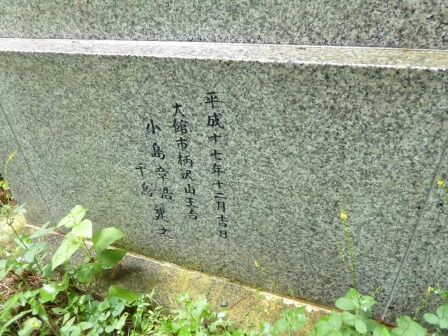 平成十七年十二月吉日
大舘市柄沢山王台
小島
千鳥